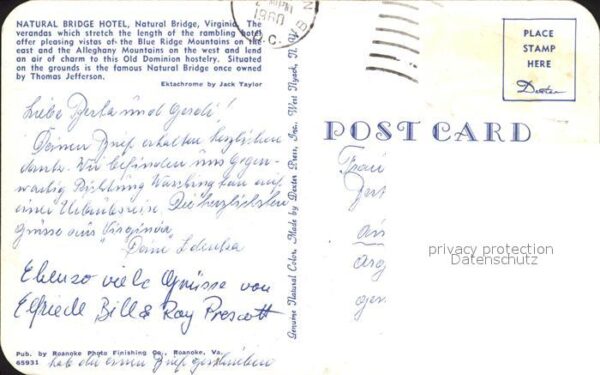 NATURAL BRIDGE HOTEL, Natural Bridge, Virginia. The
verandas which stretch the length of the rambling hotel
offer pleasing vistas of the Blue Ridge Mountains on the
east and the Alleghany Mountains on the west and lend
an air of charm to this Old Dominion hostelry. Situated
on the grounds is the famous Natural Bridge once owned
by Thomas Jefferson.
Ektachrome by Jack Taylor
PM
1960
D.C.
PLACE
STAMP
HERE
Dexter
POST CARD
Liebe Berta und Gerdi!
Deinen Brief erhalten herzlichen
dank. Wir befinden uns gegen-
wärtig Richtung Washington auf
einer Urlaubsreise. Die herzlichsten
Grüsse aus Virginia
Deine
Ebenso viele Grüsse von
Elfriede Bill & Ray Prescott
hab dir einen Brief geschrieben
Genuine Natural Color, Made by Dexter Press, Inc., West Nyack, N. Y.
Frau
an
privacy protection
Datenschutz
Pub. by Roanoke Photo Finishing Co., Roanoke, Va.
65931